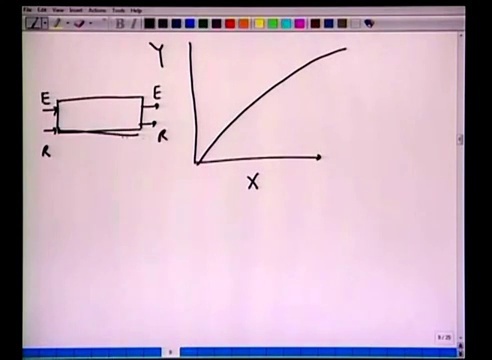 File Edit View Insert Actions Tools Help
Y
E
E
R
R
X